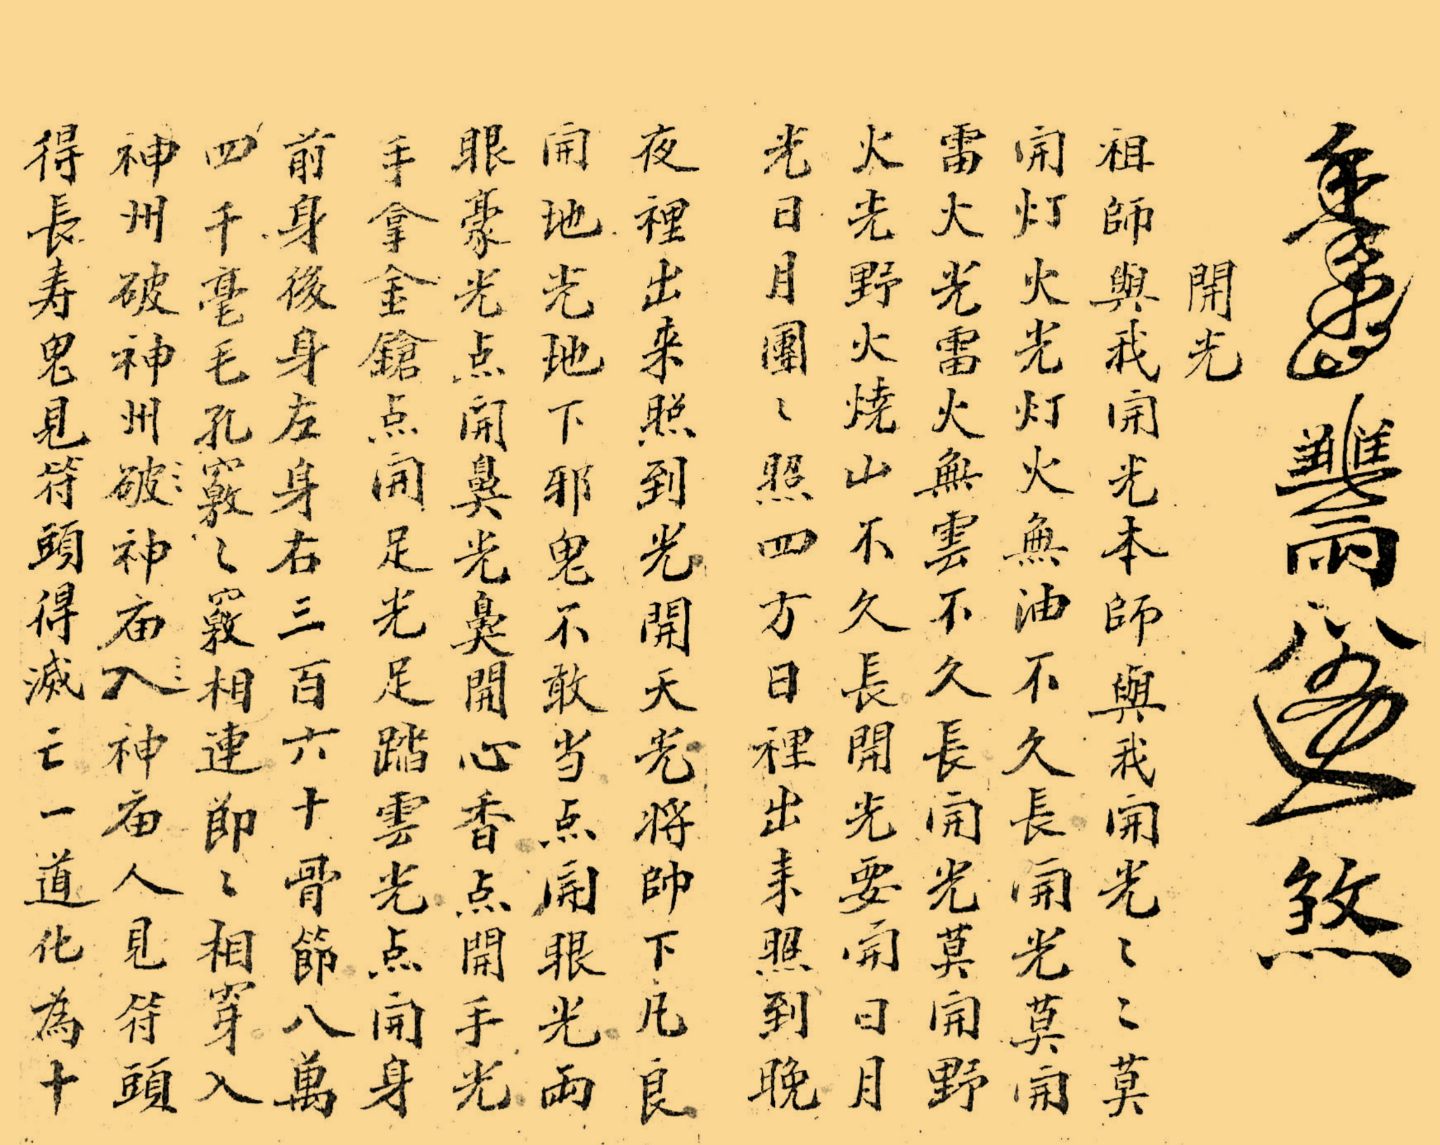 煞
開光
祖師與我開光本師與我開光〻〻莫
開灯火光灯火無油不久長開光莫開
雷火光雷火無雲不久長開光莫開野
火光野火燒山不久長開光要開日月
光日月團〻照四方日裡出来照到晚
夜裡出来照到光開天光将帥下凡良
開地光地下邪鬼不敢当点開眼光両
眼豪光点開鼻光鼻聞心香点開手光
手拿金鎗点開足光足踏雲光点開身
前身後身左身右三百六十骨節八萬
四千毫毛孔竅〻竅相連節〻相穿入
神州破神州破神庙入神庙人見符頭
得長寿鬼見符頭得滅亡一道化為十